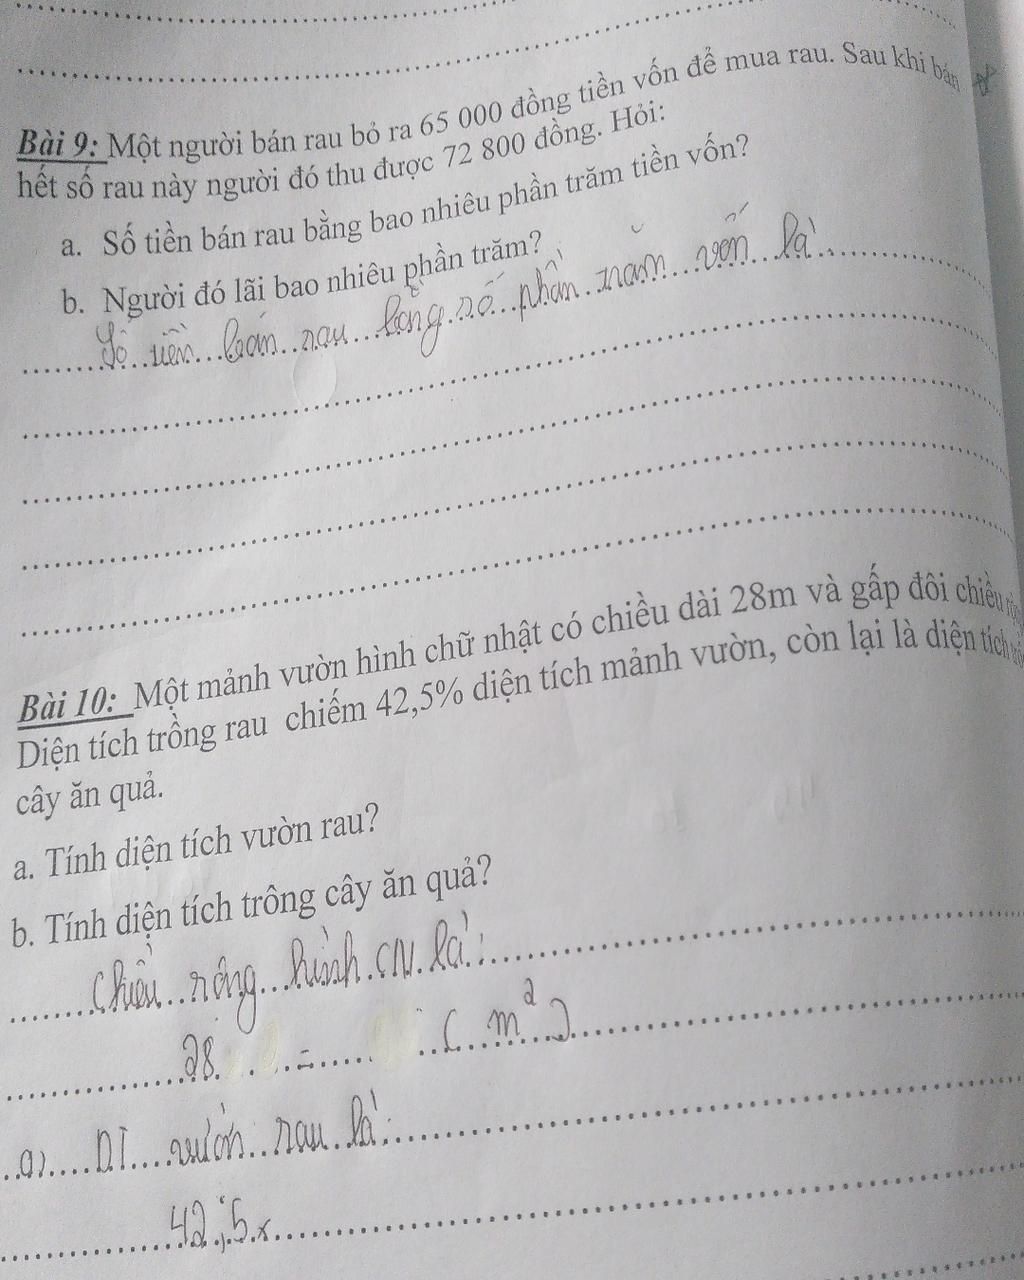 Bài 9: Một người bán rau bỏ ra 65 000 đồng tiền vốn để mua rau. Sau khi bán
hết số rau này người đó thu được 72 800 đồng. Hỏi:
a. Số tiền bán rau bằng bao nhiêu phần trăm tiền vốn?
b. Người đó lãi bao nhiêu phần trăm?
Số tiền bán rau bằng số phần trăm vốn là
Bài 10: Một mảnh vườn hình chữ nhật có chiều dài 28m và gấp đôi chiều
Diện tích trồng rau chiếm 42,5% diện tích mảnh vườn, còn lại là diện tích
cây ăn quả.
a. Tính diện tích vườn rau?
b. Tính diện tích trông cây ăn quả?
Chiều rộng hình CN là:
28 = (m²)
a) DT vườn rau là:
42,5x